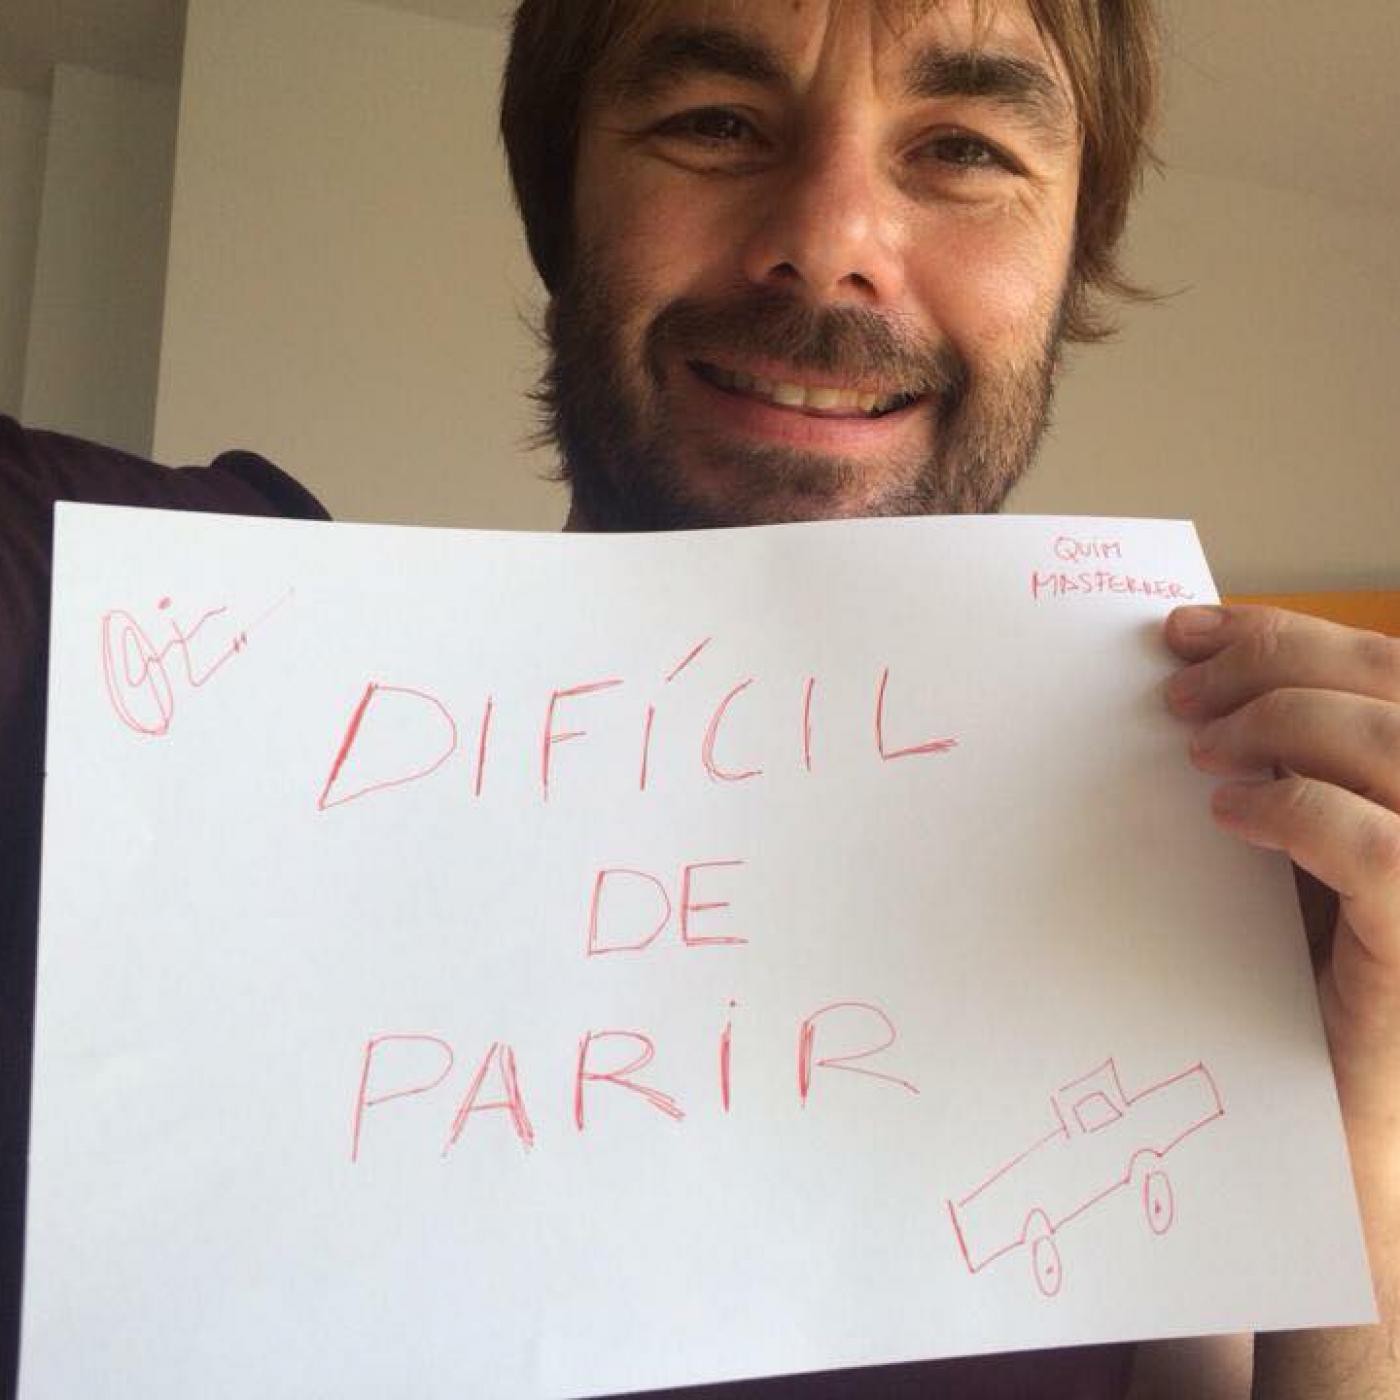 QUIM
MASFERRER
DIFÍCIL
DE
PARIR